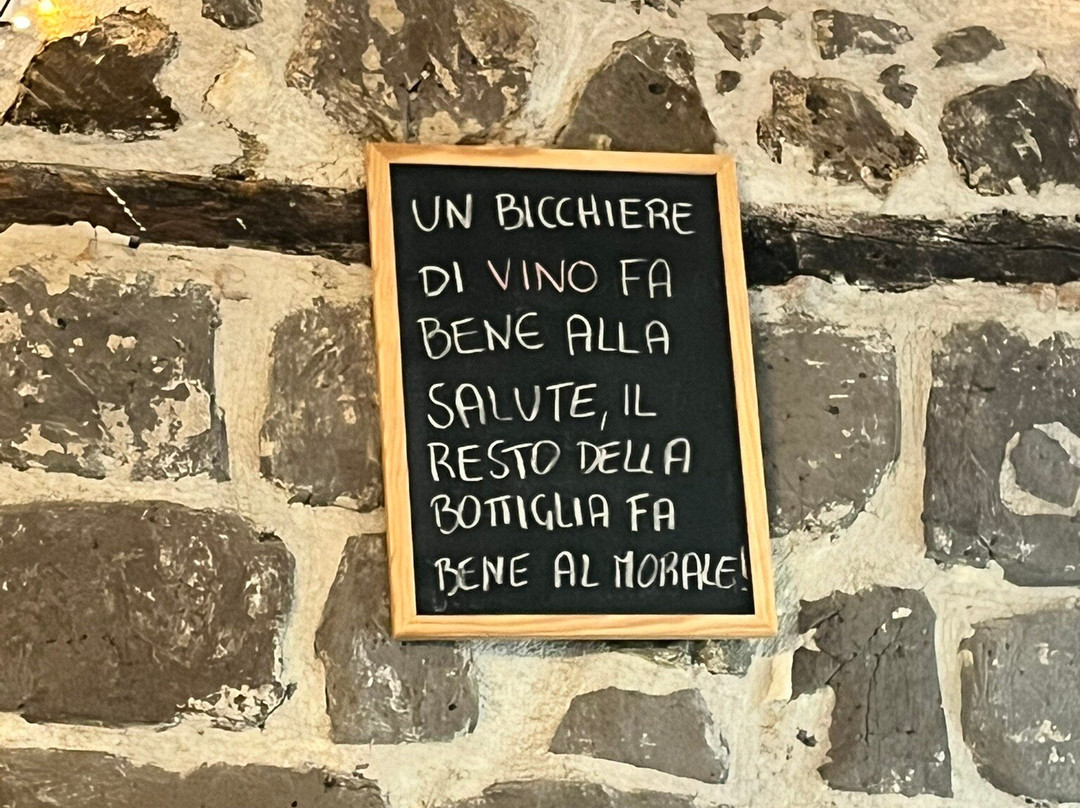 UN BICCHIERE
DI VINO FA
BENE ALLA
SALUTE, IL
RESTO DELLA
BOTTIGLIA FA
BENE AL MORALE!